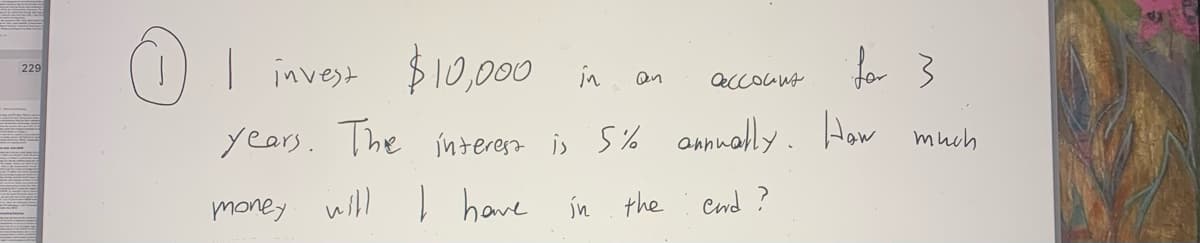 229
① I invest $10,000 in an account for 3
years. The interest is 5% annually. How much
money will I have in the end?